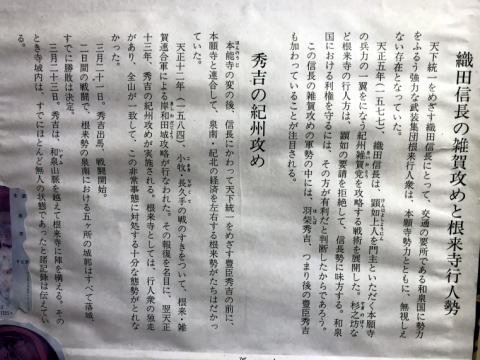 織田信長の雑賀攻めと根来寺行人勢
天下統一をめざす織田信長にとって、交通の要所である和泉国に勢力
をふるう強力な武装集団根来行人衆は、本願寺勢力とともに、無視しえ
ない存在となっていた。
天正五年(一五七七)、織田信長は、顕如上人を門主といただく本願寺
の兵力の一翼をになう紀州雑賀党を攻略する戦術を展開した。杉之坊な
ど根来寺の行人方は、顕如の要請を拒絶して、信長勢に味方する。和泉
国における利権を守るには、その方が有利だと判断したからであろう。
この信長の雑賀攻めの軍勢の中には、羽柴秀吉、つまり後の豊臣秀吉
も加わっていることが注目される。
秀吉の紀州攻め
本能寺の変の後、信長にかわって天下統一をめざす豊臣秀吉の前に、
本願寺と連合して、泉南・紀北の経済を左右する根来勢がたちはだかっ
ていた。
天正十二年(一五八四)、小牧・長久手の戦のすきをついて、根来・雑
賀連合軍による岸和田城攻略が行なわれた。その報復を名目に、翌天正
十三年、秀吉の紀州攻めが実施される。根来寺としては、行人衆の独走
があり、全山が一致して、この非常事態に対処する十分な態勢がとれな
かった。
三月二十一日。秀吉出馬、戦闘開始。
二日間の戦闘で、根来勢の泉南における五ヶ所の城郭はすべて落城、
すでに勝敗は決定。
三月二十三日、秀吉は、和泉山脈を越えて根来寺に陣を構える。その
とき寺域内は、すでにほとんど無人の状態であったと諸記録は伝えてい
る。